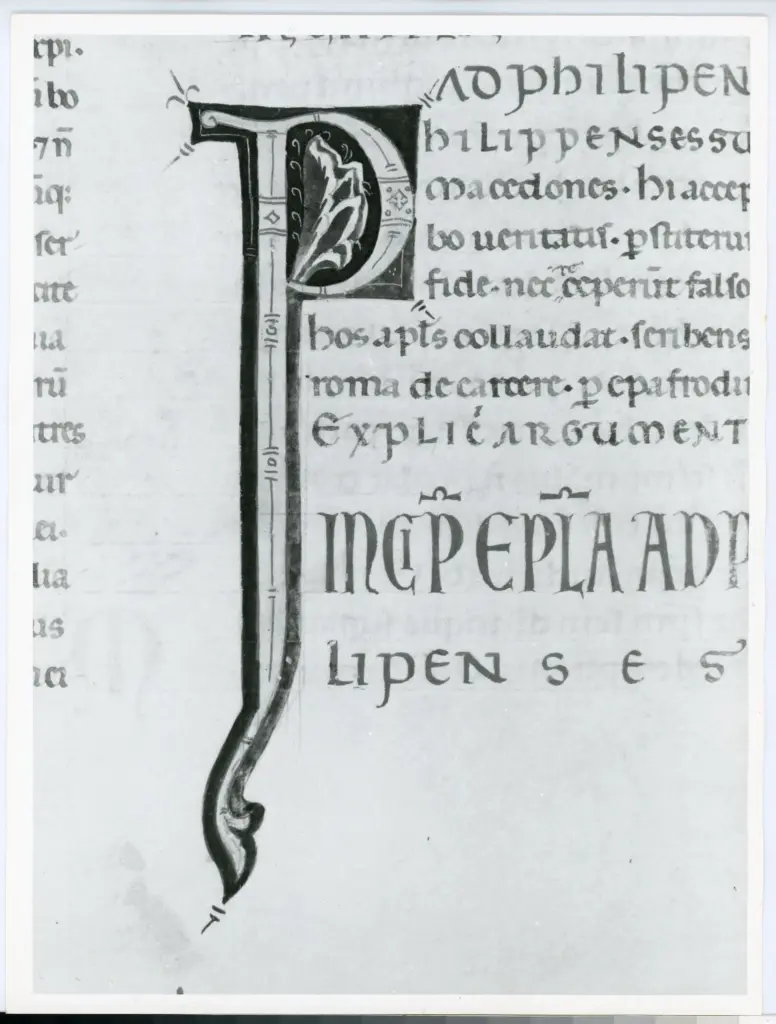 xpi.
ibo
⁊ n̄
n̄q:
ser
cite
iia
rū
ttres
uir
ci.
lia
us
nci
AD phILIPEN
P hILIPPENSES SU
Macedones. hi accep
bo ueritatis. ꝑstiterun
fide. nec receperūt falso
hos apłs collaudat. scribens
roma de carcere. ꝑ epafrodit
EXPLIC ARGUMENT
INCIP̄ EPL̄A AD P
LIPENSES